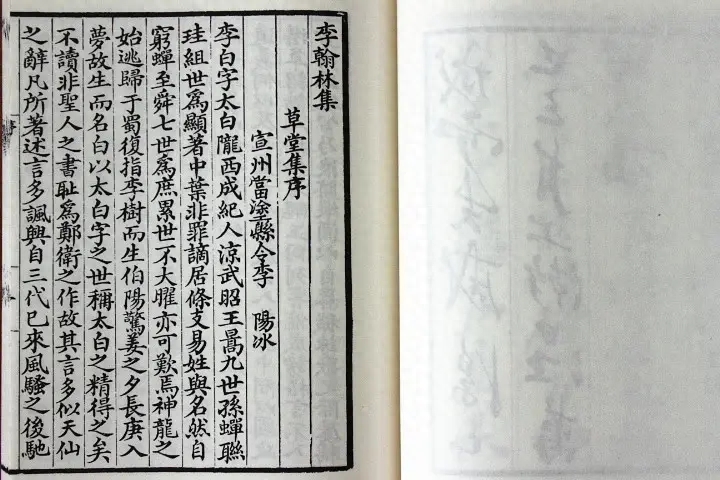 李翰林集
草堂集序
宣州當塗縣令李 陽冰
李白字太白隴西成紀人涼武昭王暠九世孫蟬聯
珪組世爲顯著中葉非罪謫居條支易姓與名然自
窮蟬至舜七世爲庶累世不大曜亦可歎焉神龍之
始逃歸于蜀復指李樹而生伯陽驚姜之夕長庚入
夢故生而名白以太白字之世稱太白之精得之矣
不讀非聖人之書耻爲鄭衛之作故其言多似天仙
之辭凡所著述言多諷興自三代巳來風騷之後馳